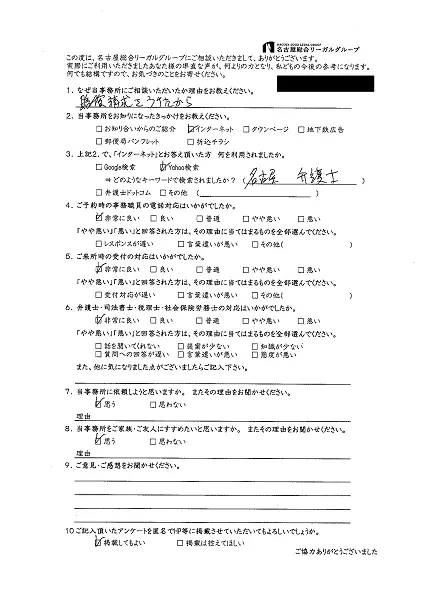 NAGOYA SOGO LEGAL GROUP
名古屋総合リーガルグループ
この度は、名古屋総合リーガルグループにご相談いただきまして、ありがとうございます。
実際にご利用いただきましたあなた様の率直な声が、何よりの力となり、私どもの今後の参考になります。
何でも結構ですので、お気づきのことをお寄せください。
1. なぜ当事務所にご相談いただいたか理由をお教えください。
請求をうけたから
2. 当事務所をお知りになったきっかけをお教えください。
□お知り合いからのご紹介 ☑インターネット □タウンページ □地下鉄広告
□郵便局パンフレット □折込チラシ
3. 上記2.で、「インターネット」とお答え頂いた方 何を利用されましたか。
□Google検索 ☑Yahoo検索
⇒どのようなキーワードで検索されましたか？( 名古屋 弁護士 )
□弁護士ドットコム □その他 ( )
4. ご予約時の事務職員の電話対応はいかがでしたか。
☑非常に良い □良い □普通 □やや悪い □悪い
「やや悪い」「悪い」と回答された方は、その理由に当てはまるものを全部選んでください。
□レスポンスが遅い □言葉遣いが悪い □その他( )
5. ご来所時の受付の対応はいかがでしたか。
☑非常に良い □良い □普通 □やや悪い □悪い
「やや悪い」「悪い」と回答された方は、その理由に当てはまるものを全部選んでください。
□受付対応が遅い □言葉遣いが悪い □その他( )
6. 弁護士・司法書士・税理士・社会保険労務士の対応はいかがでしたか。
☑非常に良い □良い □普通 □やや悪い □悪い
「やや悪い」「悪い」と回答された方は、その理由に当てはまるものを全部選んでください。
□話を聞いてくれない □提案が少ない □知識が少ない
□質問への回答が遅い □言葉遣いが悪い □態度が悪い
また、他に気になりました点がございましたらご記入下さい。
7. 当事務所に依頼しようと思いますか。 またその理由をお聞かせください。
☑思う □思わない
理由
8. 当事務所をご家族・ご友人にすすめたいと思いますか。 またその理由をお聞かせください。
☑思う □思わない
理由
9. ご意見・ご感想をお聞かせください。
10 ご記入頂いたアンケートを匿名でHP等に掲載させていただいてもよろしいでしょうか。
☑掲載してもよい □掲載は控えてほしい
ご協力ありがとうございました